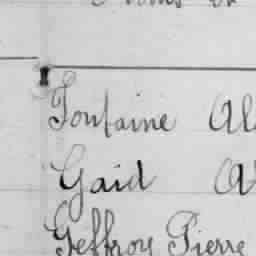 Fontaine Al
Gaid
Geffroy Pierre